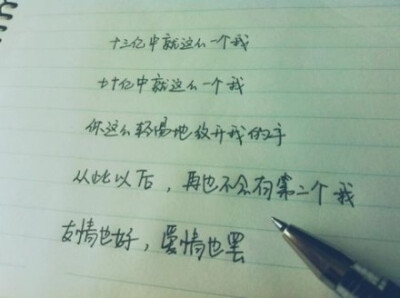 十三亿中就这么一个我
七十亿中就这么一个我
你这么轻易地放开我的手
从此以后，再也不会有第二个我
友情也好，爱情也罢